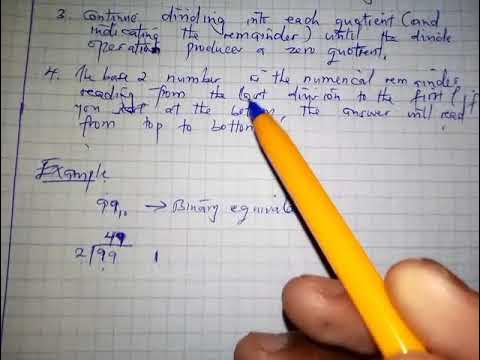 3. Continue dividing into each quotient (and
indicating the remainder) until the divide
operation produces a zero quotient.
4. The base 2 number is the numerical remainder
reading from the last division to the first (if
you at the bottom, the answer will read
from top to bottom
Example
99₁₀ → Binary
49
2/99 1